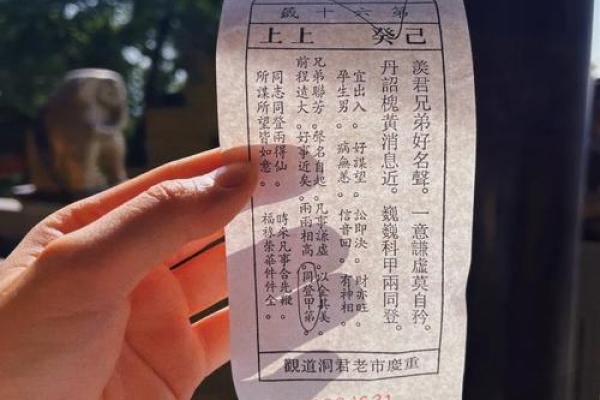 第六十籤
己癸 上上
羨君兄弟好名聲。一意謙虛莫自矜。
丹詔槐黃消息近。巍巍科甲兩同登。
宜出入。好謀望。訟即決。財亦旺。
孕生男。病無恙。信音回。有神相。
兄弟聯芳。聲名自起。凡事謙虛。以全其美。
前程遠大。好事近矣。兩兩相高。同登甲第。
同志同登兩得仙。時來凡事合先鞭。
所謀所望皆如意。福祿榮華件件全。
重慶市老君洞道觀